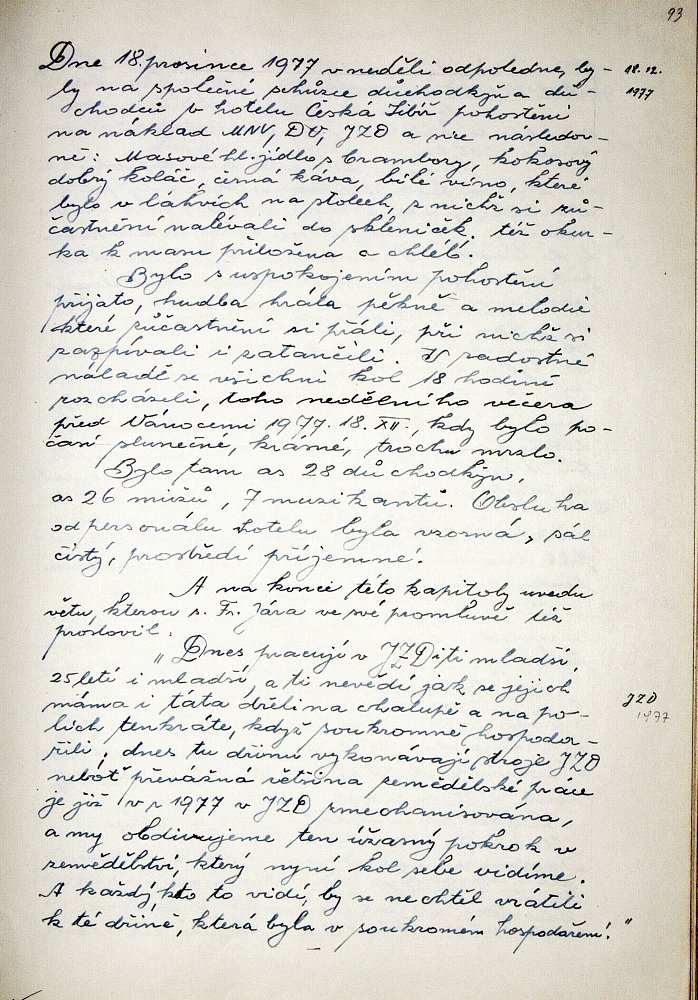 93
Dne 18. prosince 1977 v neděli odpoledne, by- 18. 12.
ly na společné schůzce důchodkyň a dů- 1977
chodců v hotelu Česká Sibiř pohostěni
na náklad MNV, DV, JZD a sice následov-
ně: Masové hl. jídlo s brambory, kokosový
dobrý koláč, černá káva, bílé víno, které
bylo v láhvích na stolech, z nichž si zú-
častnění nalévali do skleniček. též okur-
ka k masu přiložena a chléb.
Bylo s uspokojením pohostění
přijato, hudba hrála pěkně a melodie
které zúčastnění si přáli, při nichž si
zazpívali i zatančili. V radostné
náladě se všichni kol 18 hodině
rozcházeli, toho nedělního večera
před Vánocemi 1977. 18. XII., kdy bylo po-
časí slunečné, krásné, trochu mrzlo.
Bylo tam as 28 důchodkyn,
as 26 mužů, 7 muzikantů. Obsluha
od personálu hotelu byla vzorná, sál
čistý, prostředí příjemné.
A na konec této kapitoly uvedu
větu, kterou s. Fr. Jára ve své promluvě též
proslovil:
"Dnes pracují v JZD i ti mladší,
25 letí i mladší, a ti nevědí jak se jejich
máma i táta dřeli na chalupě a na po- JZD
lích tenkráte, když soukromně hospoda- 1977
řili, dnes tu dřinu vykonávají stroje JZD
neboť převážná většina zemědělské práce
je již v r 1977 v JZD zmechanisována,
a my obdivujeme ten úžasný pokrok v
zemědělství, který nyní kol sebe vidíme.
A každý, kto to vidí, by se nechtěl vrátiti
k té dřině, která byla v soukromém hospodaření."